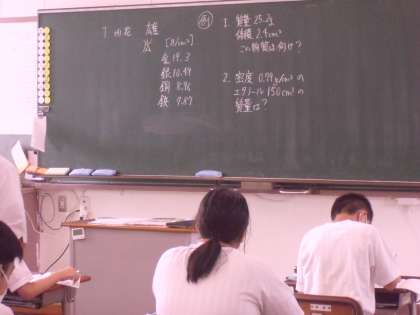 例
1. 質量 25.7g
体積 2.4cm³
この物質は何け?
[g/cm³]
金 19.3
銀 10.49
銅 8.96
鉄 7.87
2. 密度 0.79g/cm³の
エタノール 150cm³の
質量は?